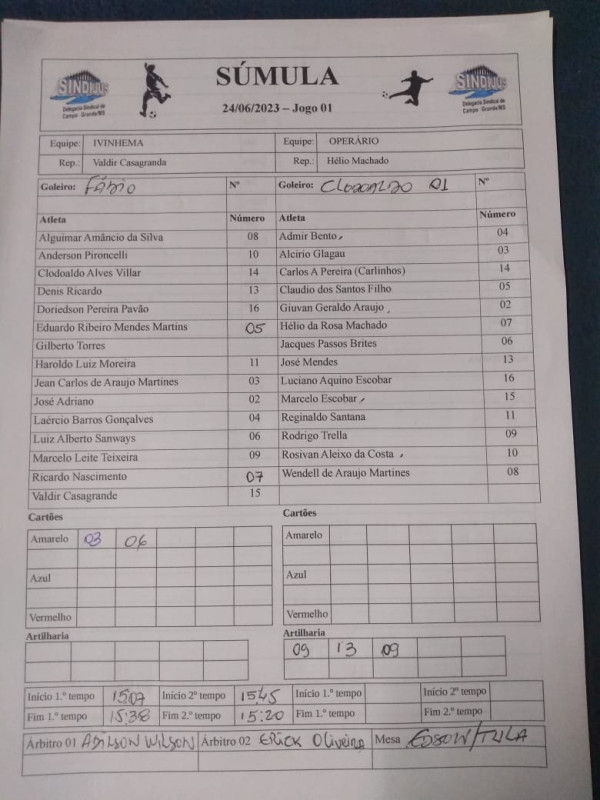 SINDIJUS SÚMULA SINDIJUS
Delegacia Sindical de Delegacia Sindical de
Campo - Grande/MS 24/06/2023 – Jogo 01 Campo - Grande/MS
Equipe: IVINHEMA Equipe: OPERÁRIO
Rep.: Valdir Casagranda Rep.: Hélio Machado
Goleiro: Fábio Nº Goleiro: Clodoaldo 01 Nº
Atleta Número Atleta Número
Alguimar Amâncio da Silva 08 Admir Bento 04
Anderson Pironcelli 10 Alcirio Glagau 03
Clodoaldo Alves Villar 14 Carlos A Pereira (Carlinhos) 14
Denis Ricardo 13 Claudio dos Santos Filho 05
Doriedson Pereira Pavão 16 Giuvan Geraldo Araujo 02
Eduardo Ribeiro Mendes Martins 05 Hélio da Rosa Machado 07
Gilberto Torres Jacques Passos Brites 06
Haroldo Luiz Moreira 11 José Mendes 13
Jean Carlos de Araujo Martines 03 Luciano Aquino Escobar 16
José Adriano 02 Marcelo Escobar 15
Laércio Barros Gonçalves 04 Reginaldo Santana 11
Luiz Alberto Sanways 06 Rodrigo Trella 09
Marcelo Leite Teixeira 09 Rosivan Aleixo da Costa 10
Ricardo Nascimento 07 Wendell de Araujo Martines 08
Valdir Casagrande 15
Cartões Cartões
Amarelo 03 06 Amarelo
Azul Azul
Vermelho Vermelho
Artilharia Artilharia
09 13 09
Início 1.º tempo 15:07 Início 2º tempo 15:45 Início 1.º tempo Início 2º tempo
Fim 1.º tempo 15:38 Fim 2.º tempo 15:20 Fim 1.º tempo Fim 2.º tempo
Árbitro 01 ADILSON WILSON Árbitro 02 ERICK Oliveira Mesa EDSON/TULA